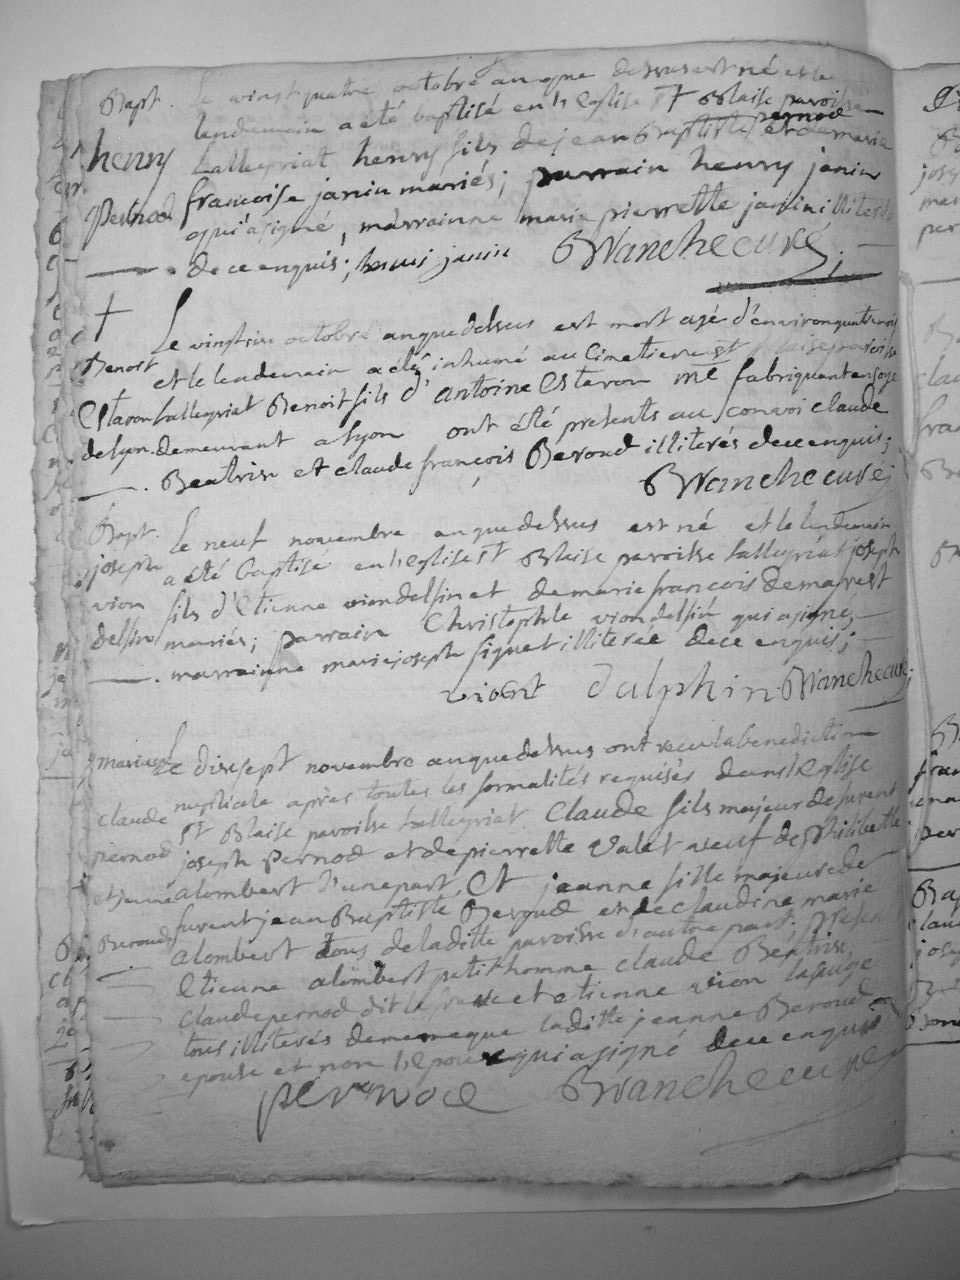 Bapt. Le vingt quatre octobre an que dessus est né et le
lendemain a été baptisé en l'Eglise St Blaise paroisse
henry Lalleyriat henry fils de jean Baptiste pernod et de marie
pernod francoise janin mariés; parrain henry janin
qui a signé, marrainne marie pierrette janin illiterée
de ce enquis; henri janin BWanche curé;
+ Le vinsix octobre an que dessus est mort agé d'environ quatre mois
Benoit et le lendemain a été inhumé au Cimetiere St Blaise paroisse
Estaron Lalleyriat Benoit fils d'antoine Estaron me fabriquant en soye
de lyon demeurant a lyon ont été presents au convoi claude
Beatrix et claude françois Beroud illiterés de ce enquis;
BWanche curé
Bapt. Le neuf novembre an que dessus est né et le lendemain
joseph a été baptisé en l'eglise St Blaise paroisse Lalleyriat joseph
vion fils d'Etienne vion delfin et de marie francois Demarest
delfin mariés; parrain Christophle vion delfin qui a signe,
marrainne marie joseph siguet illiterée de ce enquis;
viont dalphin BWanche curé;
mariage Le disesept novembre an que dessus ont recu la benediction
claude nuptiale après toutes les formalités requises dans l'Eglise
pernod St Blaise paroisse Lalleyriat Claude fils majeur de furent
joseph pernod et de pierrette Valet veuf de philiberte
et jeanne alombert d'une part, Et jeanne fille majeure de
Beroud furent jean Baptiste Beroud et de claudine marie
alombert tous de la ditte paroisse d'autre part; presents
Etienne alombert petit homme claude Beatrix,
claude pernod dit le et etienne vion
tous illiterés de meme que laditte jeanne Beroud
epouse et non l'epoux qui a signé de ce enquis
pernod BWanche curé